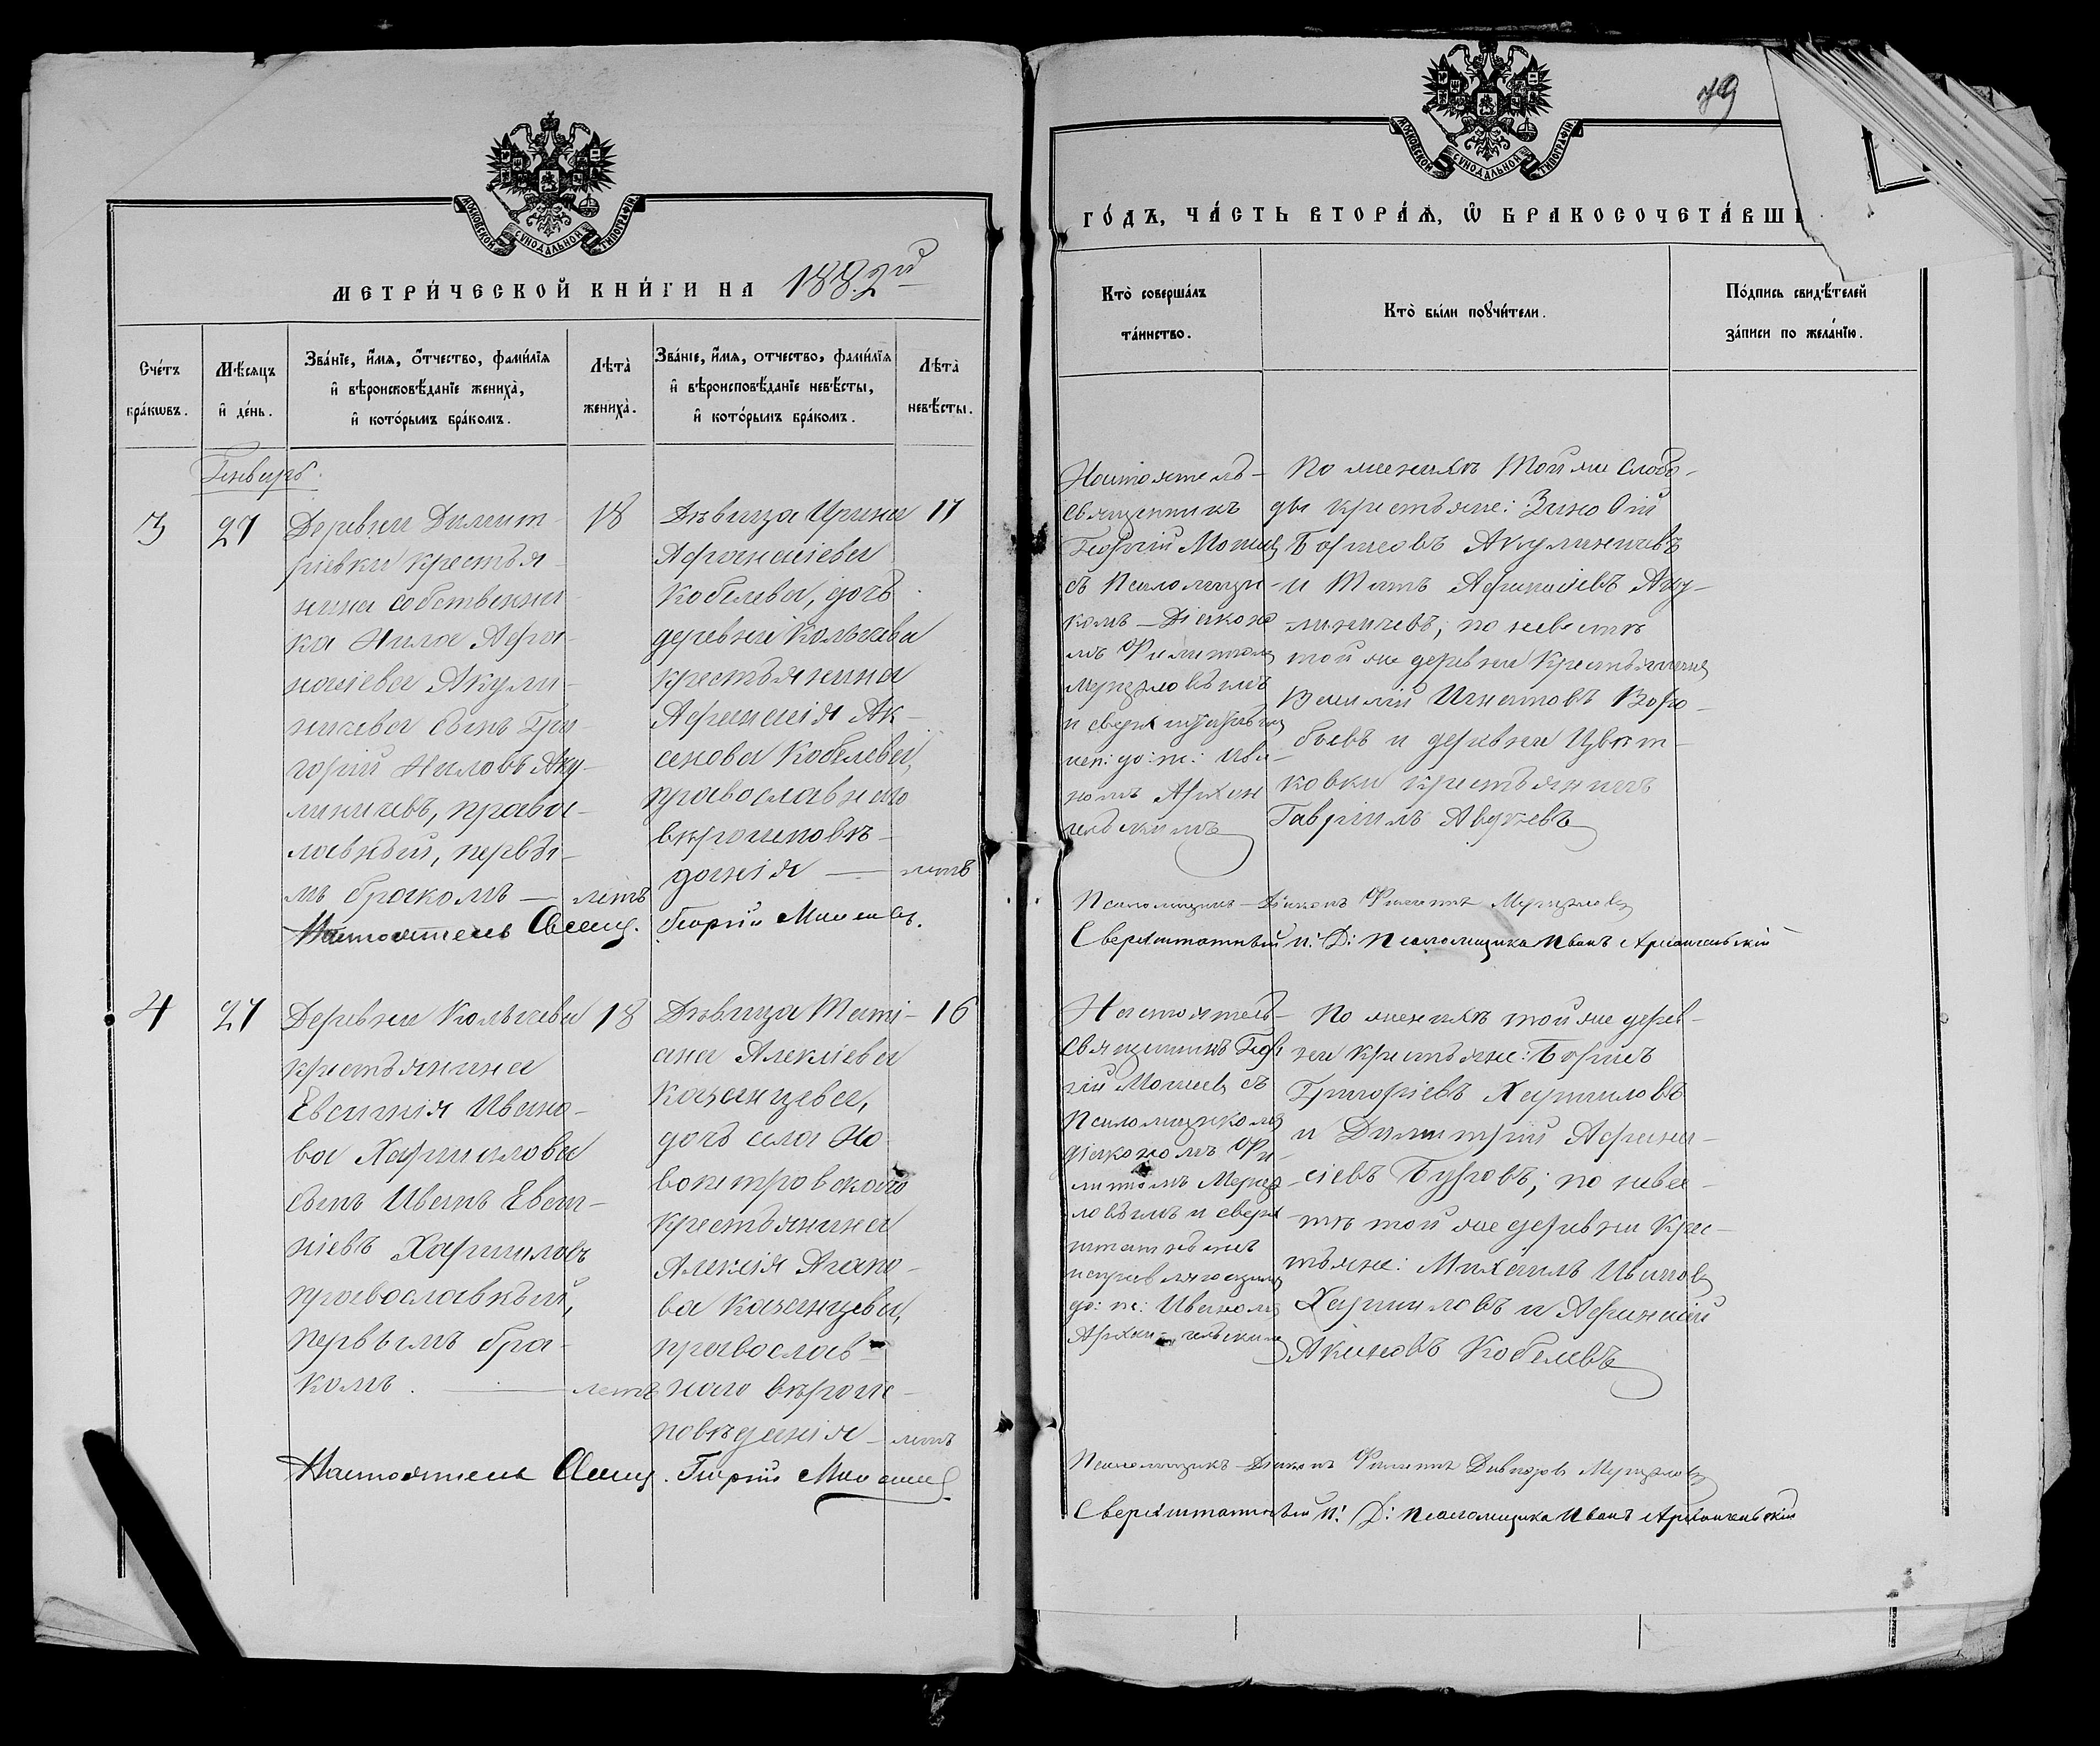 МОСКОВСКОЙ СѴНОДАЛЬНОЙ ТИПОГРАФІИ.
МЕТРИ́ЧЕСКОЙ КНИ́ГИ НА 1882й
Сче́тъ бра́кѡвъ.
Мѣ́сяцъ и҆ де́нь.
Зва́нїе, и҆́мя, ѻ҆́тчество, фами́лїя
и҆ вѣроисповѣ́данїе жениха̀,
и҆ кото́рымъ бра́комъ.
Лѣта̀ жениха̀.
Зва́нїе, и҆́мя, отчество, фами́лїя
и҆ вѣроисповѣ́данїе невѣ́сты,
и҆ кото́рымъ бра́комъ.
Лѣта̀ невѣ́сты.
Генварь.
3
27
Деревни Димит-
ріевки крестья-
нина собственни-
ка Нила Афа-
насіева Акули-
ничева сынъ Гри-
горій Ниловъ Аку-
линичевъ, правос-
лавный, первы-
мъ бракомъ — летъ
18
Дѣвица Ирина
Афанасіева
Кобелева, дочь
деревни Колычева
крестьянина
Афанасія Ак-
сенова Кобелева,
православнаго
вѣроисповѣ-
данія — летъ
17
Настоятель Свящ. Георгій Моисеевъ.
4
27
Деревни Колычева
крестьянина
Евсигнія Ивано-
ва Харшилова
сынъ Иванъ Евсиг-
ніевъ Харшиловъ
православный,
первымъ бра-
комъ. — летъ
18
Дѣвица Таті-
ана Алексіева
Казанцева,
дочь села Но-
вопетровскаго
крестьянина
Алексія Агапо-
ва Казанцева,
православ-
наго вѣроис-
повѣданія — летъ
16
Настоятель Свящ. Георгій Моисеевъ
79
МОСКОВСКОЙ СѴНОДАЛЬНОЙ ТИПОГРАФІИ.
ГО́ДЪ, ЧА́СТЬ ВТОРА́Я, Ѡ҆ БРАКОСОЧЕТА́ВШИ
Кто̀ соверша́лъ
та́инство.
Кто̀ бы́ли поꙋчи́тели.
По́дпись свидѣ́телей
за́писи по жела́нїю.
Настоятель-
священникъ
Георгій Моисеев
съ Псаломщи-
комъ — Діаконо
мъ Филиппомъ
и сверхштатным
исп: до: пс: Ива-
номъ Архан
гельскимъ
По женихѣ той же слобо-
ды крестьяне: Зиновій
Борисовъ Акулиничевъ
и Титъ Афанасіевъ Аку-
линичевъ; по невестѣ
той же деревни крестьянин
Василій Игнатовъ Воро-
бьевъ и деревни Цвѣт-
ковки крестьянинъ
Гавріилъ Авдѣевъ
Псаломщикъ — Діаконъ Филиппъ
Сверхштатный И: Д: Псаломщика Иванъ Архангельскій
Настоятель-
священникъ Геор
гій Моисеев съ
Псаломщикомъ
діакономъ Фи-
липпомъ
и сверх
штатнымъ
исправляющим
до: пс: Иваномъ
Архан-гельским
По женихѣ той же дерев-
ни крестьяне: Борисъ
Григоріевъ Харшиловъ
и Димитрій Афана-
сіевъ Буровъ; по невес-
тѣ той же деревни крес-
тьяне: Михаилъ Ивановъ
Харшиловъ и Афанасій
Аксеновъ Кобелевъ
Псаломщикъ — Діаконъ Филиппъ
Сверхштатный И: Д: Псаломщика Иванъ Архангельскій